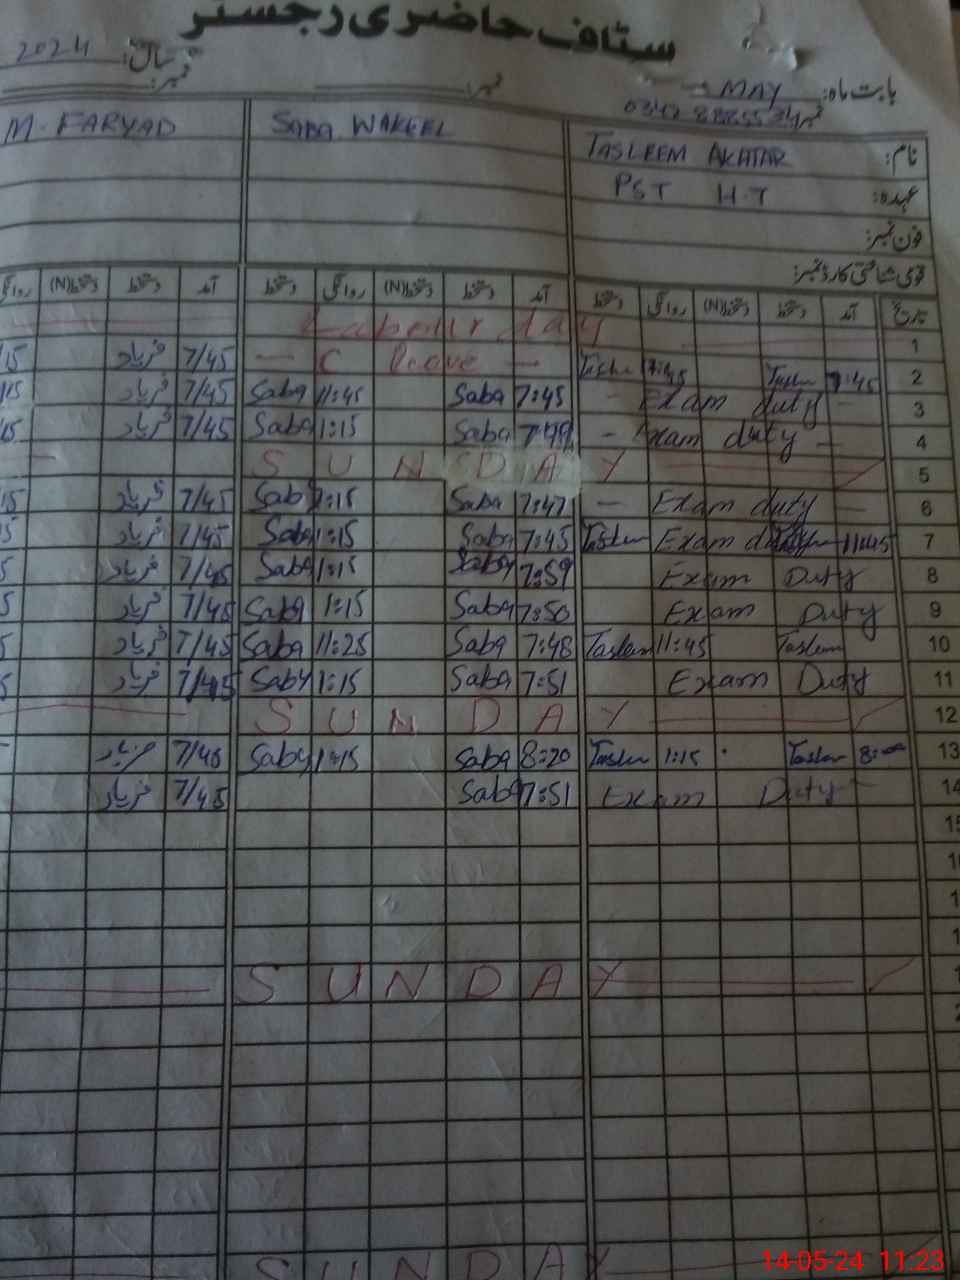 سٹاف حاضری رجسٹر
بابت ماہ: MAY سال: 2024
نمبر: نمبر:
نام: TASLEEM AKHTAR SABA WAKEEL M. FARYAD
عہدہ: PST H.T
فون نمبر:
قومی شناختی کارڈ نمبر:
تاریخ آمد دستخط دستخط(N) روانگی دستخط آمد دستخط دستخط(N) روانگی دستخط آمد دستخط دستخط(N)
1 Labour day
2 7:45 C leave 7/45 فریاد
3 Exam duty 7:45 Saba 11:45 Saba 7/45 فریاد
4 Exam duty Saba 1:15 Saba 7/45 فریاد
5 SUNDAY
6 Exam duty 7:47 Saba 1:15 Saba 7/45 فریاد
7 11:45 Exam Taslem 7:45 Saba 1:15 Saba 7/45 فریاد
8 Exam Duty 7:59 Saba 1:15 Saba 7/45 فریاد
9 Exam Duty 7:50 Saba 1:15 Saba 7/45 فریاد
10 Taslem 11:45 Taslem 7:48 Saba 11:25 Saba 7/45 فریاد
11 Exam Duty 7:51 Saba 1:15 Saba 7/45 فریاد
12 SUNDAY
13 Taslem 1:15 Taslem 8:20 Saba 1:15 Saba 7/45 فریاد
14 Exam Duty 7:51 Saba 7/45 فریاد
SUNDAY
SUNDAY
14-05-24 11:23